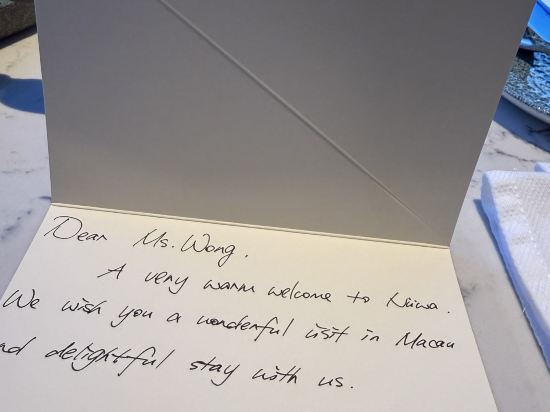 Dear Ms. Wong.
A very warm welcome to Niwa.
We wish you a wonderful visit in Macau
nd delightful stay with us.